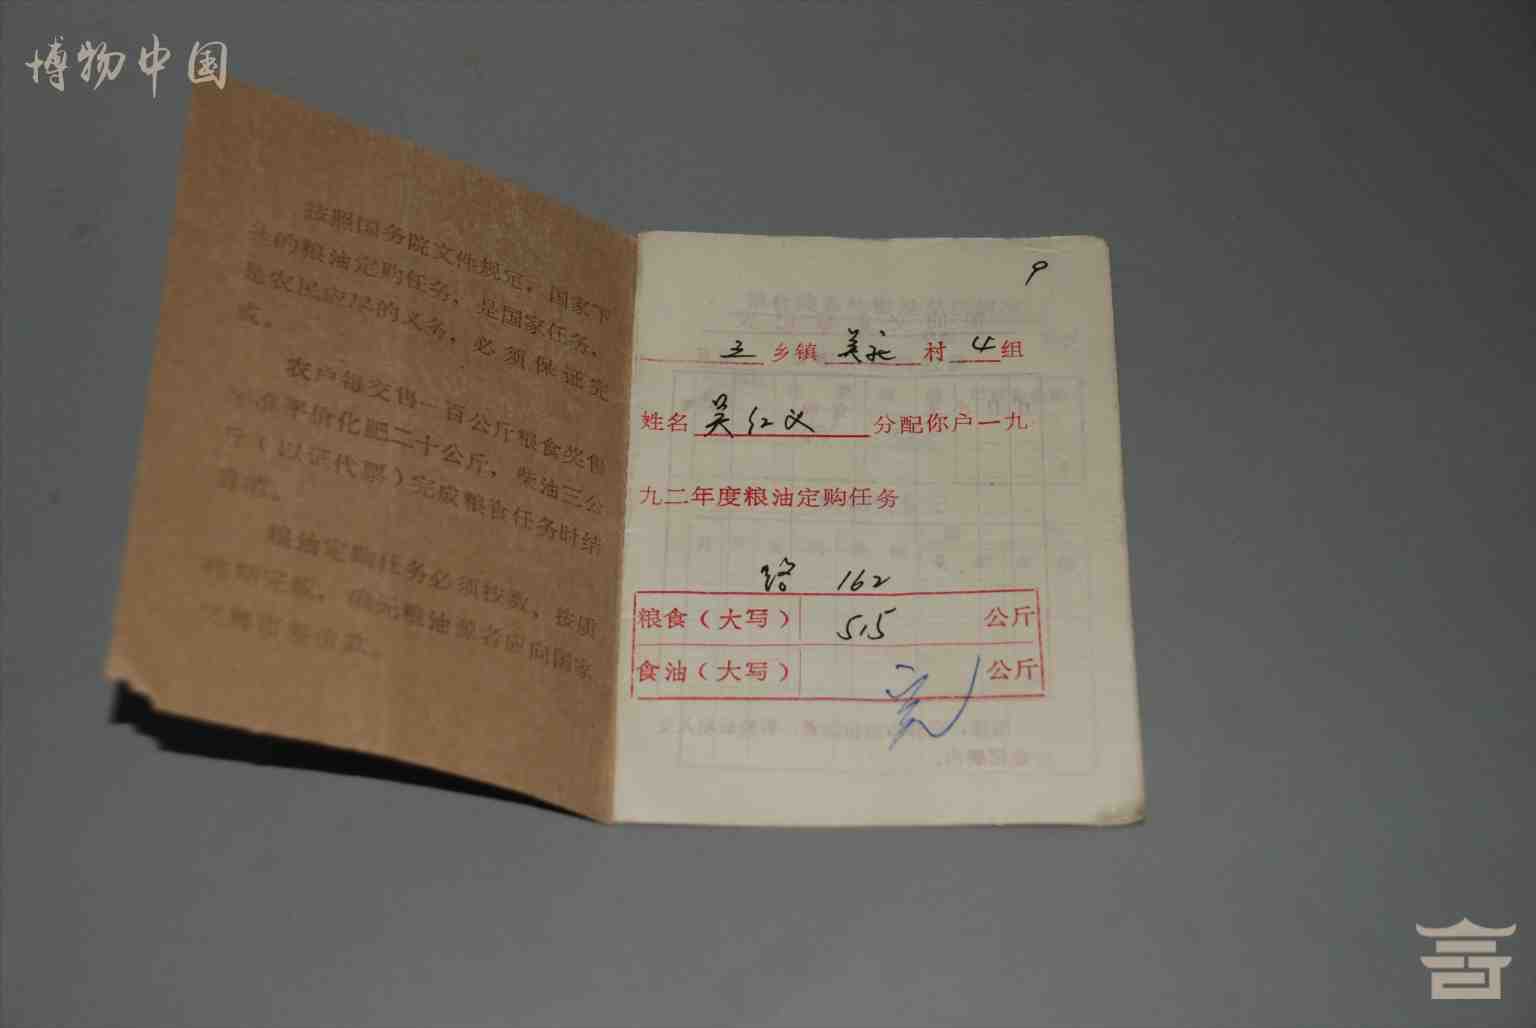 博物中国
按照国务院文件规定，国家下
达的粮油定购任务，是国家任务，
是农民应尽的义务，必须保证完
成。
农户每交售一百公斤粮食奖售
标准平价化肥二十公斤，柴油三公
斤（以证代票）完成粮食任务时结
算清。
粮油定购任务必须按数，按质
按期完成，
9
乡镇 吴 村 4 组
姓名 吴红义 分配你户一九
九二年度粮油定购任务
162
粮食（大写） 515 公斤
食油（大写） 公斤